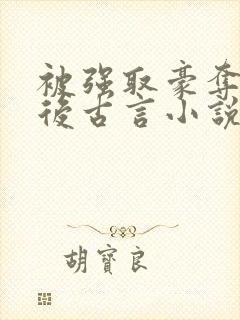 被强取豪夺
後古言小說
胡寶良